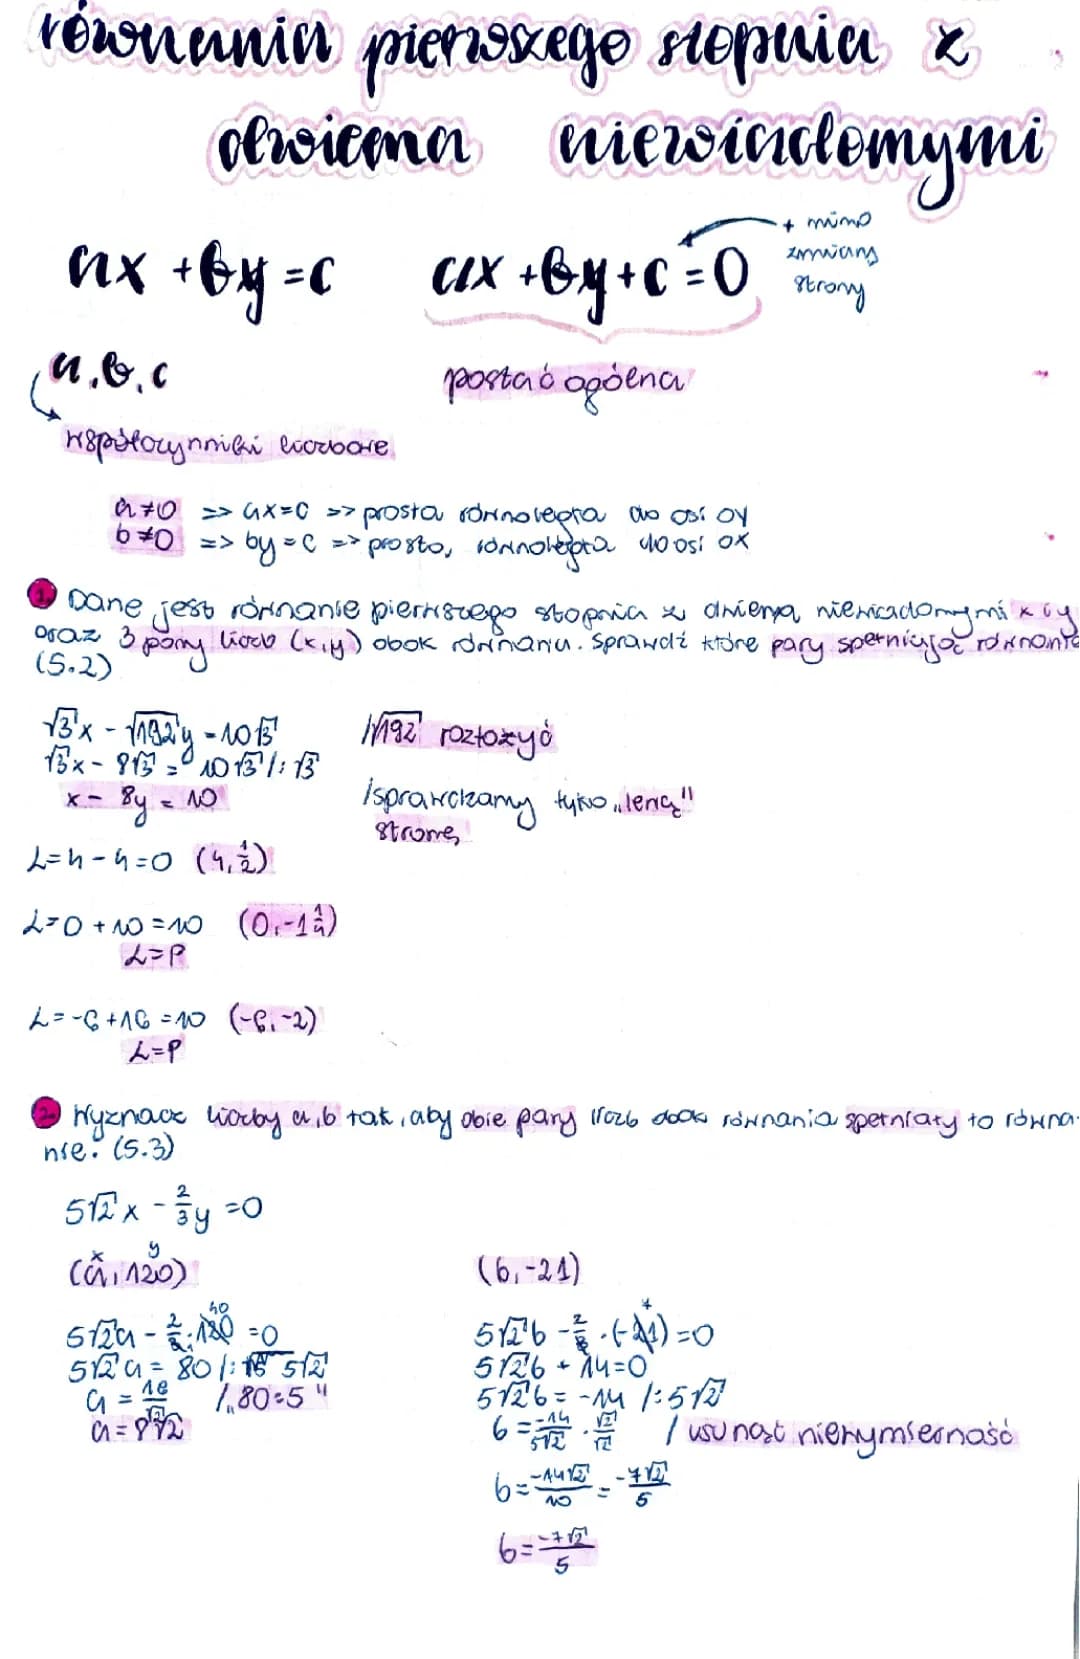 równania pierwszego stopnia z
dwiema niewiadomymi
ax + by = c ax + by + c = 0 + mimo
zmiany
strony
a, b, c postać ogólna
współczynniki liczbowe
a ≠ 0 => ax = c => prosta równoległa do osi oy
b ≠ 0 => by = c => prosta, równoległa do osi ox
1. Dane jest równanie pierwszego stopnia z dwiema niewiadomymi x i y
oraz 3 pary liczb (x, y) obok równania. Sprawdź które pary spełniają równanie
(5.2)
√3x - √192y = 10√3 /√192 rozłożyć
√3x - 8√3 = 10√3 /: √3
x - 8y = 10 /sprawdzamy tylko „lewą"
stronę
L = 4 - 4 = 0 (4, 1/2)
L = 0 + 10 = 10 (0, -1 1/4)
L = P
L = -6 + 16 = 10 (-6, -2)
L = P
2. Wyznacz liczby a, b tak, aby obie pary liczb obok równania spełniały to równa-
nie. (5.3)
5√2 x - 2/3 y = 0
x y
(a, 120) (b, -21)
40 7
5√2a - 2/3 · 120 = 0 5√2b - 2/3 · (-21) = 0
5√2 a = 80 /: 5√2 5√2b + 14 = 0
a = 16/√2 /„80:5" 5√2b = -14 /: 5√2
a = 8√2 b = -14/5√2 · √2/√2 / usunąć niewymierność
b = -14√2/10 = -7√2/5
b = -7√2/5